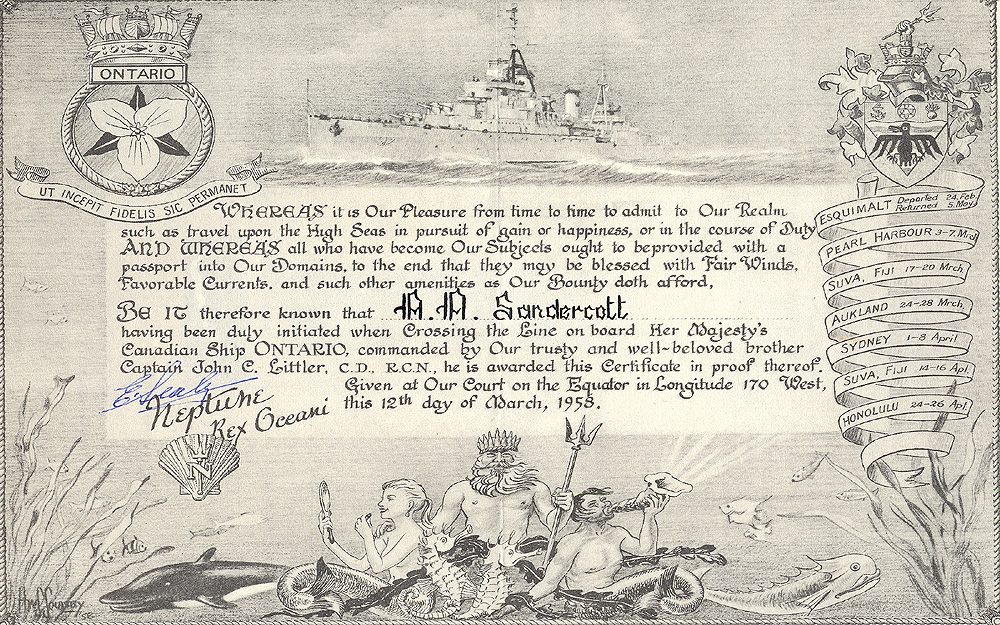 ONTARIO
UT INCEPIT FIDELIS SIC PERMANET
WHEREAS it is Our Pleasure from time to time to admit to Our Realm
such as travel upon the High Seas in pursuit of gain or happiness, or in the course of Duty
AND WHEREAS all who have become Our Subjects ought to beprovided with a
passport into Our Domains, to the end that they may be blessed with Fair Winds,
Favorable Currents, and such other amenities as Our Bounty doth afford,
BE IT therefore known that Sandercott
having been duly initiated when Crossing the Line on board Her Majesty's
Canadian Ship ONTARIO, commanded by Our trusty and well-beloved brother
Captain John C. Littler, C.D., R.C.N., he is awarded this Certificate in proof thereof.
Given at Our Court on the Equator in Longitude 170 West,
this 12th day of March, 1958.
Neptune
Rex Oceani
N
ESQUIMALT Departed 24. Feb.
Returned 5. May
PEARL HARBOUR 3-7. Mrch
SUVA, FIJI 17-20 Mrch
AUKLAND 24-28 Mrch.
SYDNEY 1-8 April
SUVA, FIJI 14-16 Apl.
HONOLULU 24-26 Apl.